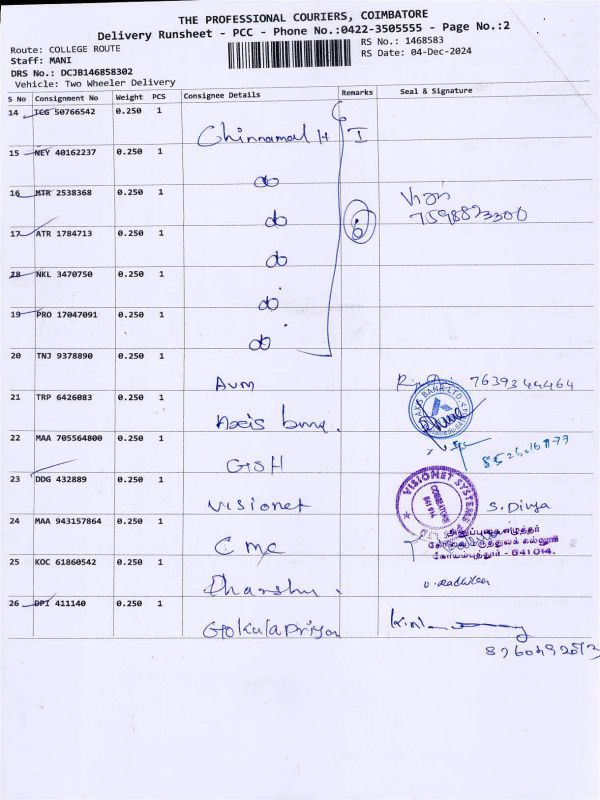 THE PROFESSIONAL COURIERS, COIMBATORE
Delivery Runsheet - PCC - Phone No.:0422-3505555 - Page No.:2
Route: COLLEGE ROUTE
RS No.: 1468583
Staff: MANI
RS Date: 04-Dec-2024
DRS No.: DCJB146858302
Vehicle: Two Wheeler Delivery
S No Consignment No Weight PCS Consignee Details Remarks Seal & Signature
14 TCG 50766542 0.250 1
Chinnamal H I
15 NEY 40162237 0.250 1
do
16 MTR 2538368 0.250 1
do 6 7598823300
17 ATR 1784713 0.250 1
do
18 NKL 3470750 0.250 1
do
19 PRO 17047091 0.250 1
do
20 TNJ 9378890 0.250 1
Avm 7639344464
21 TRP 6426083 0.250 1
Axis bank. AXIS BANK LTD.
22 MAA 705564800 0.250 1
GSH
23 DDG 432889 0.250 1
Visionet VISIONET SYSTEMS COIMBATORE 641 014 S. Divya
24 MAA 943157864 0.250 1
CMC
கோயம்புத்தூர் - 641 014.
25 KOC 61860542 0.250 1
Dharshu.
26 DPI 411140 0.250 1
Gokulapriya